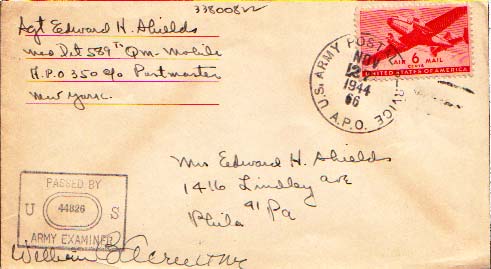 338008
Sgt Edward H. Shields
Det 589th Qm. Mobile
A.P.O 350 c/o Postmaster
New York.
AIR 6 MAIL
CENTS
UNITED STATES OF AMERICA
U.S. ARMY POSTAL SERVICE
NOV
1944
A.P.O.
Mrs Edward H. Shields
1416 Lindley ave
Phila 41 Pa
PASSED BY
U 44826 S
ARMY EXAMINER
William